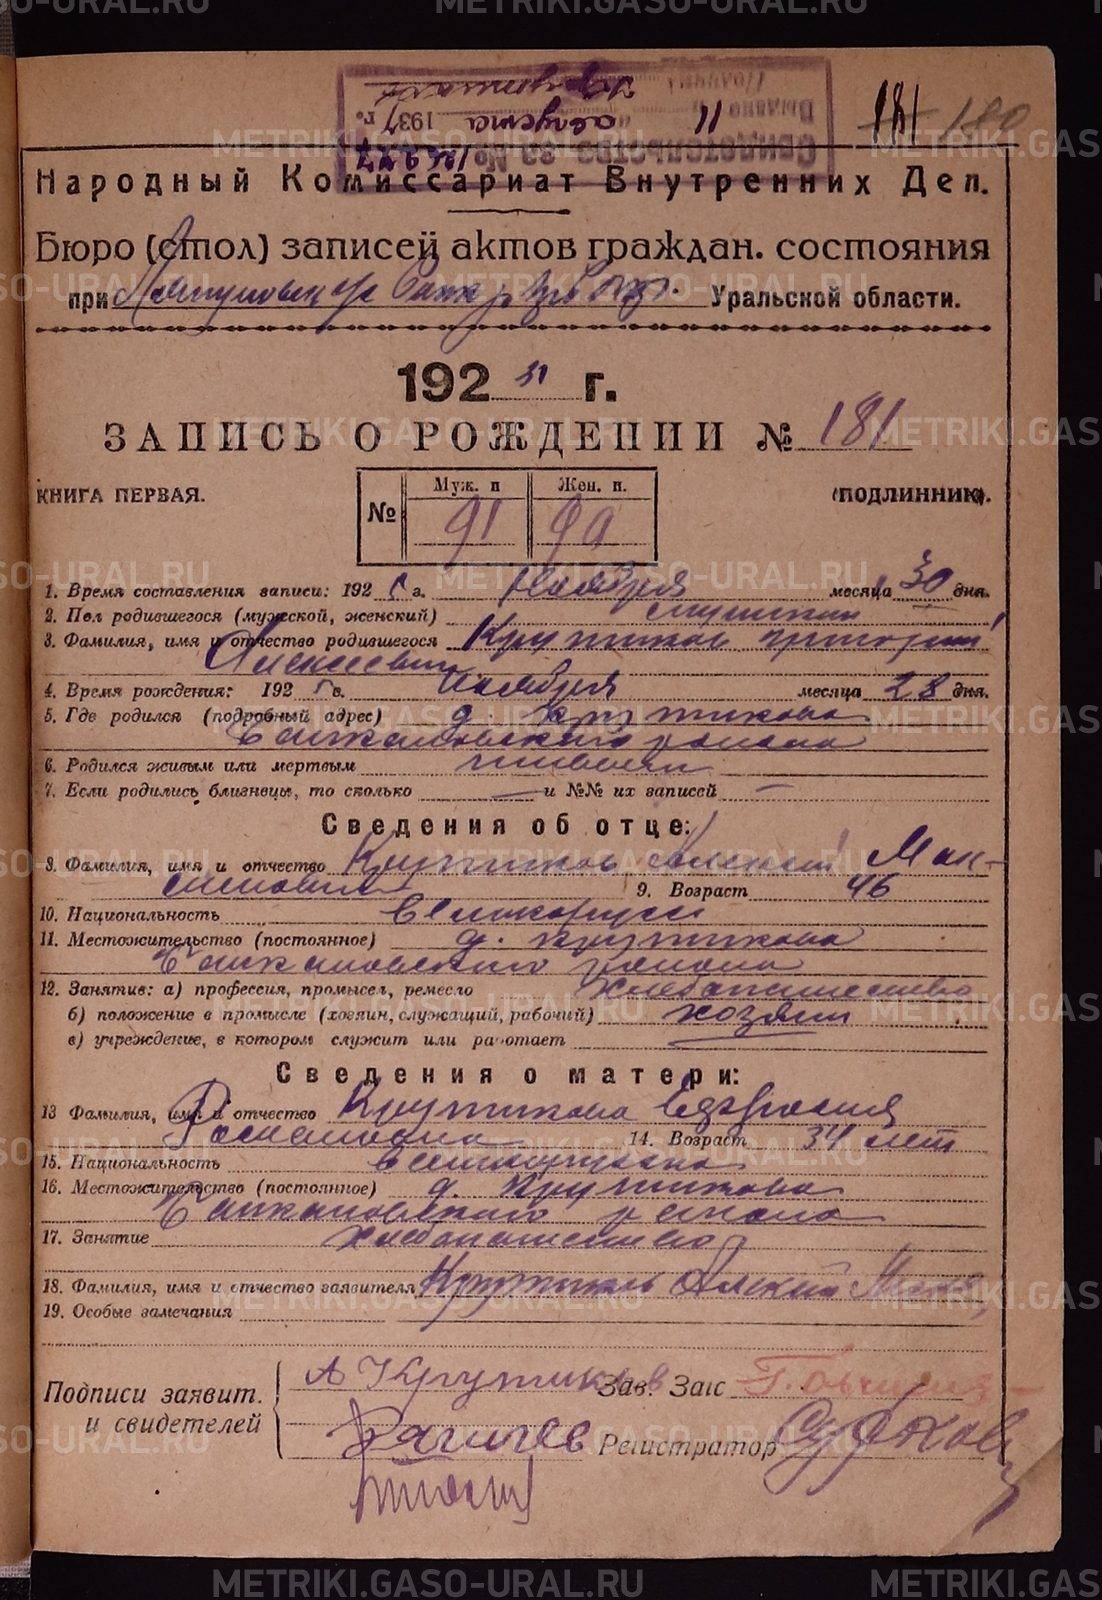 181 180
Свидетельство за № 126277
Выдано 11 августа 1937 г.
Народный Комиссариат Внутренних Дел.
Бюро (стол) записей актов граждан. состояния
при Уральской области.
192 г.
ЗАПИСЬ О РОЖДЕНИИ № 181
КНИГА ПЕРВАЯ. (ПОДЛИННИК).
№ Муж. п Жен. п.
91 90
1. Время составления записи: 192 г. Ноября месяца 30 дня.
2. Пол родившегося (мужской, женский) мужской
3. Фамилия, имя и отчество родившегося Крутиков Григорий
Алексеевич
4. Время рождения: 192 г. Ноября месяца 28 дня.
5. Где родился (подробный адрес) д. Крутикова
Байкаловского района
6. Родился живым или мертвым живым
7. Если родились близнецы, то сколько — и №№ их записей —
Сведения об отце:
8. Фамилия, имя и отчество Крутиков Алексей Мак-
симович 9. Возраст 46
10. Национальность великорусс
11. Местожительство (постоянное) д. Крутикова
Байкаловского района
12. Занятие: а) профессия, промысел, ремесло хлебопашество
б) положение в промысле (хозяин, служащий, рабочий) хозяин
в) учреждение, в котором служит или работает
Сведения о матери:
13 Фамилия, имя и отчество Крутикова Евфросиния
Романовна 14. Возраст 34 лет
15. Национальность великорусская
16. Местожительство (постоянное) д. Крутикова
Байкаловского района
17. Занятие хлебопашество
18. Фамилия, имя и отчество заявителя Крутиков Алексей Макс.
19. Особые замечания
Подписи заявит. и свидетелей
А Крутиков Зав. Загс
Регистратор
METRIKI.GASO-URAL.RU